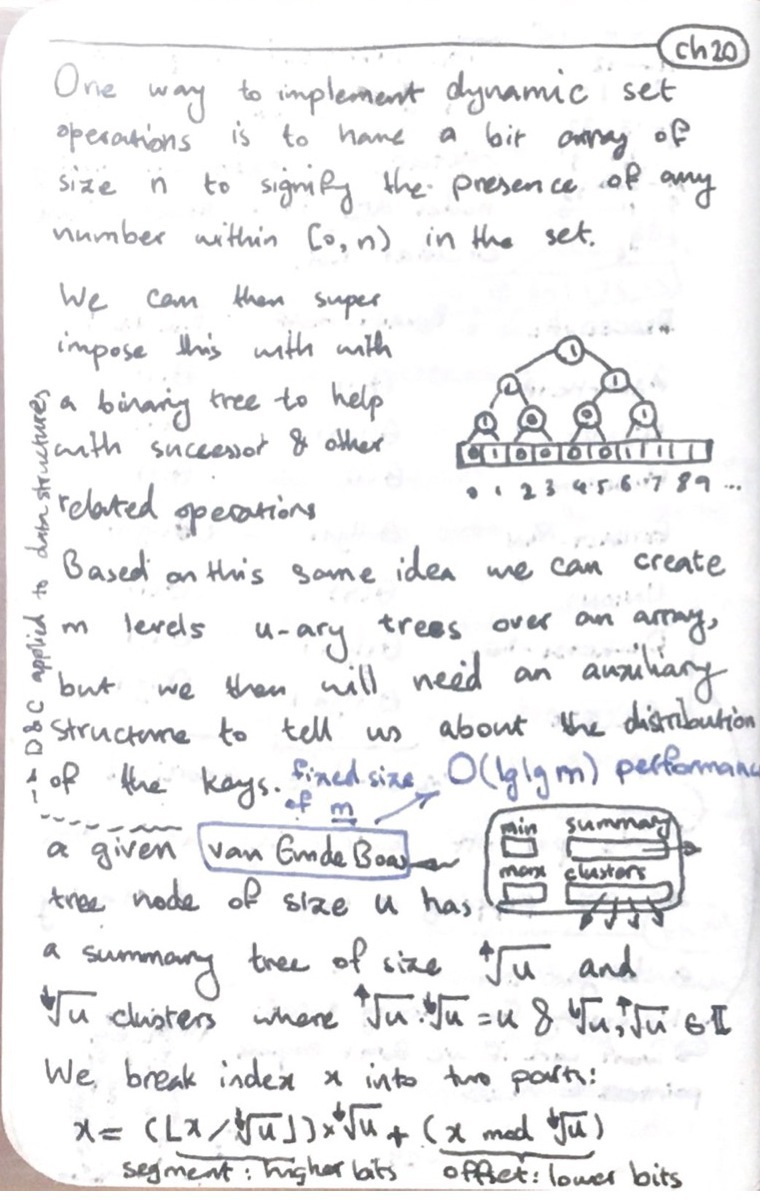 ch20
One way to implement dynamic set
operations is to have a bit array of
size n to signify the presence of any
number within [0,n) in the set.
We can then super
impose this with with
a binary tree to help
with successor & other
related operations
1
1 1
1 0 0 1
0 1 0 0 0 0 1 1
0 1 2 3 4 5 6 7 8 9 ...
Based on this same idea we can create
m levels u-ary trees over an array,
but we then will need an auxiliary
structure to tell us about the distribution
of the keys.
D&C applied to data structures
fixed size
of m
O(lg lg m) performance
a given van Emde Boas
tree node of size u has
min summary
max clusters
a summary tree of size ↑√u and
↓√u clusters where ↑√u·↓√u = u & ↓√u, ↑√u ∈ I
We break index x into two parts:
x = (⌊x/↓√u⌋)×↓√u + (x mod ↓√u)
segment: higher bits offset: lower bits